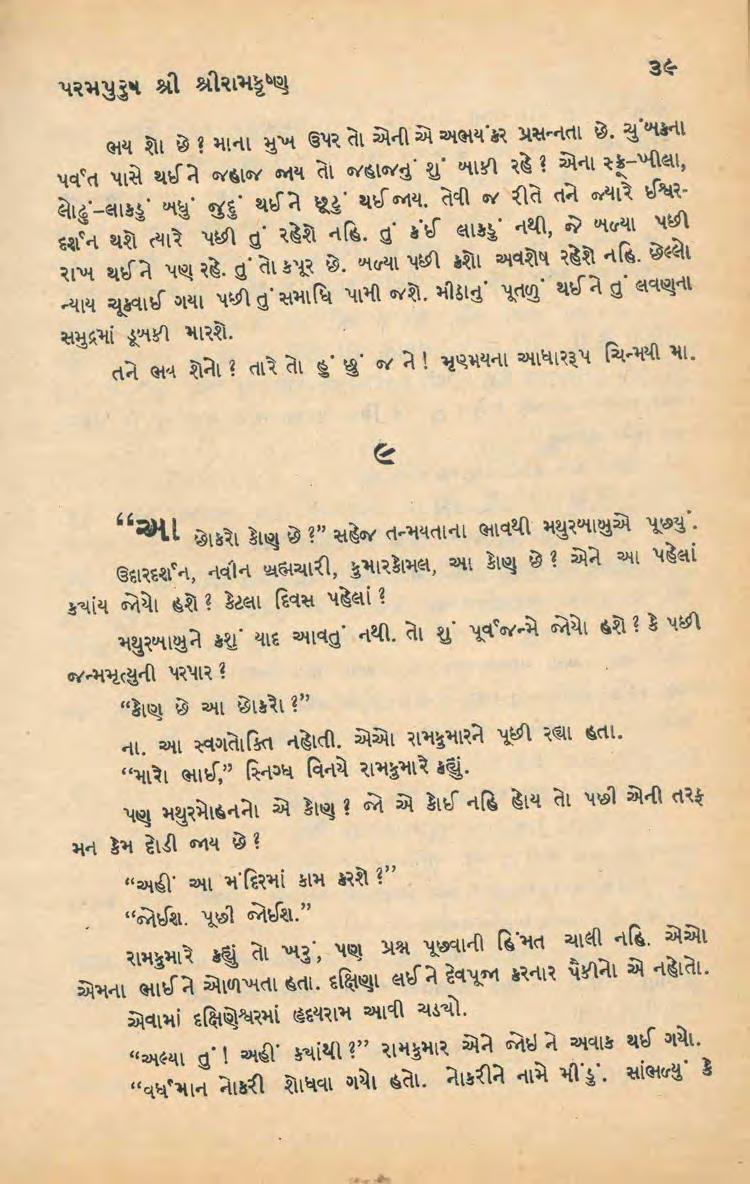 ૩૯
પરમપુરુષ શ્રી શ્રીરામકૃષ્ણ
ભય શો છે ? માના મુખ ઉપર તો એની એ અભયંકર પ્રસન્નતા છે. ચુંબકના
પર્વત પાસે થઈને જહાજ જાય તો જહાજનું શું બાકી રહે ? એના સ્ક્રૂ–ખીલા,
લોઢું–લાકડું બધું જુદું થઈને છૂટું થઈ જાય. તેવી જ રીતે તને જ્યારે ઈશ્વર-
દર્શન થશે ત્યારે પછી તું રહેશે નહિ. તું કંઈ લાકડું નથી, જે બળ્યા પછી
રાખ થઈને પણ રહે. તું તો કપૂર છે. બળ્યા પછી કશો અવશેષ રહેશે નહિ. છેલ્લો
ન્યાય ચૂકવાઈ ગયા પછી તું સમાધિ પામી જશે. મીઠાનું પૂતળું થઈને તું લવણના
સમુદ્રમાં ડૂબકી મારશે.
તને ભય શેનો ? તારે તો હું છું જ ને ! મૃણમયના આધારરૂપ ચિન્મયી મા.
૯
“આ છોકરો કોણ છે ?” સહેજ તન્મયતાના ભાવથી મથુરબાબુએ પૂછયું.
ઉદારદર્શન, નવીન બ્રહ્મચારી, કુમારકોમલ, આ કોણ છે ? એને આ પહેલાં
કયાંય જોયો હશે ? કેટલા દિવસ પહેલાં ?
મથુરબાબુને કશું યાદ આવતું નથી. તો શું પૂર્વજન્મે જોયો હશે ? કે પછી
જન્મમૃત્યુની પરપાર ?
“કોણ છે આ છોકરો ?”
ના. આ સ્વગતોક્તિ નહોતી. એઓ રામકુમારને પૂછી રહ્યા હતા.
“મારો ભાઈ,” સ્નિગ્ધ વિનયે રામકુમારે કહ્યું.
પણ મથુરમોહનનો એ કોણ ? જો એ કોઈ નહિ હોય તો પછી એની તરફ
મન કેમ દોડી જાય છે ?
“અહીં આ મંદિરમાં કામ કરશે ?”
“જોઈશ. પૂછી જોઈશ.”
રામકુમારે કહ્યું તો ખરું, પણ પ્રશ્ન પૂછવાની હિંમત ચાલી નહિ. એઓ
એમના ભાઈને ઓળખતા હતા. દક્ષિણા લઈને દેવપૂજા કરનાર પૈકીનો એ નહોતો.
એવામાં દક્ષિણેશ્વરમાં હૃદયરામ આવી ચડયો.
“અલ્યા તું ! અહીં કયાંથી ?” રામકુમાર એને જોઇને અવાક થઈ ગયો.
“વર્ધમાન નોકરી શોધવા ગયો હતો. નોકરીને નામે મીંડું. સાંભળ્યું કે